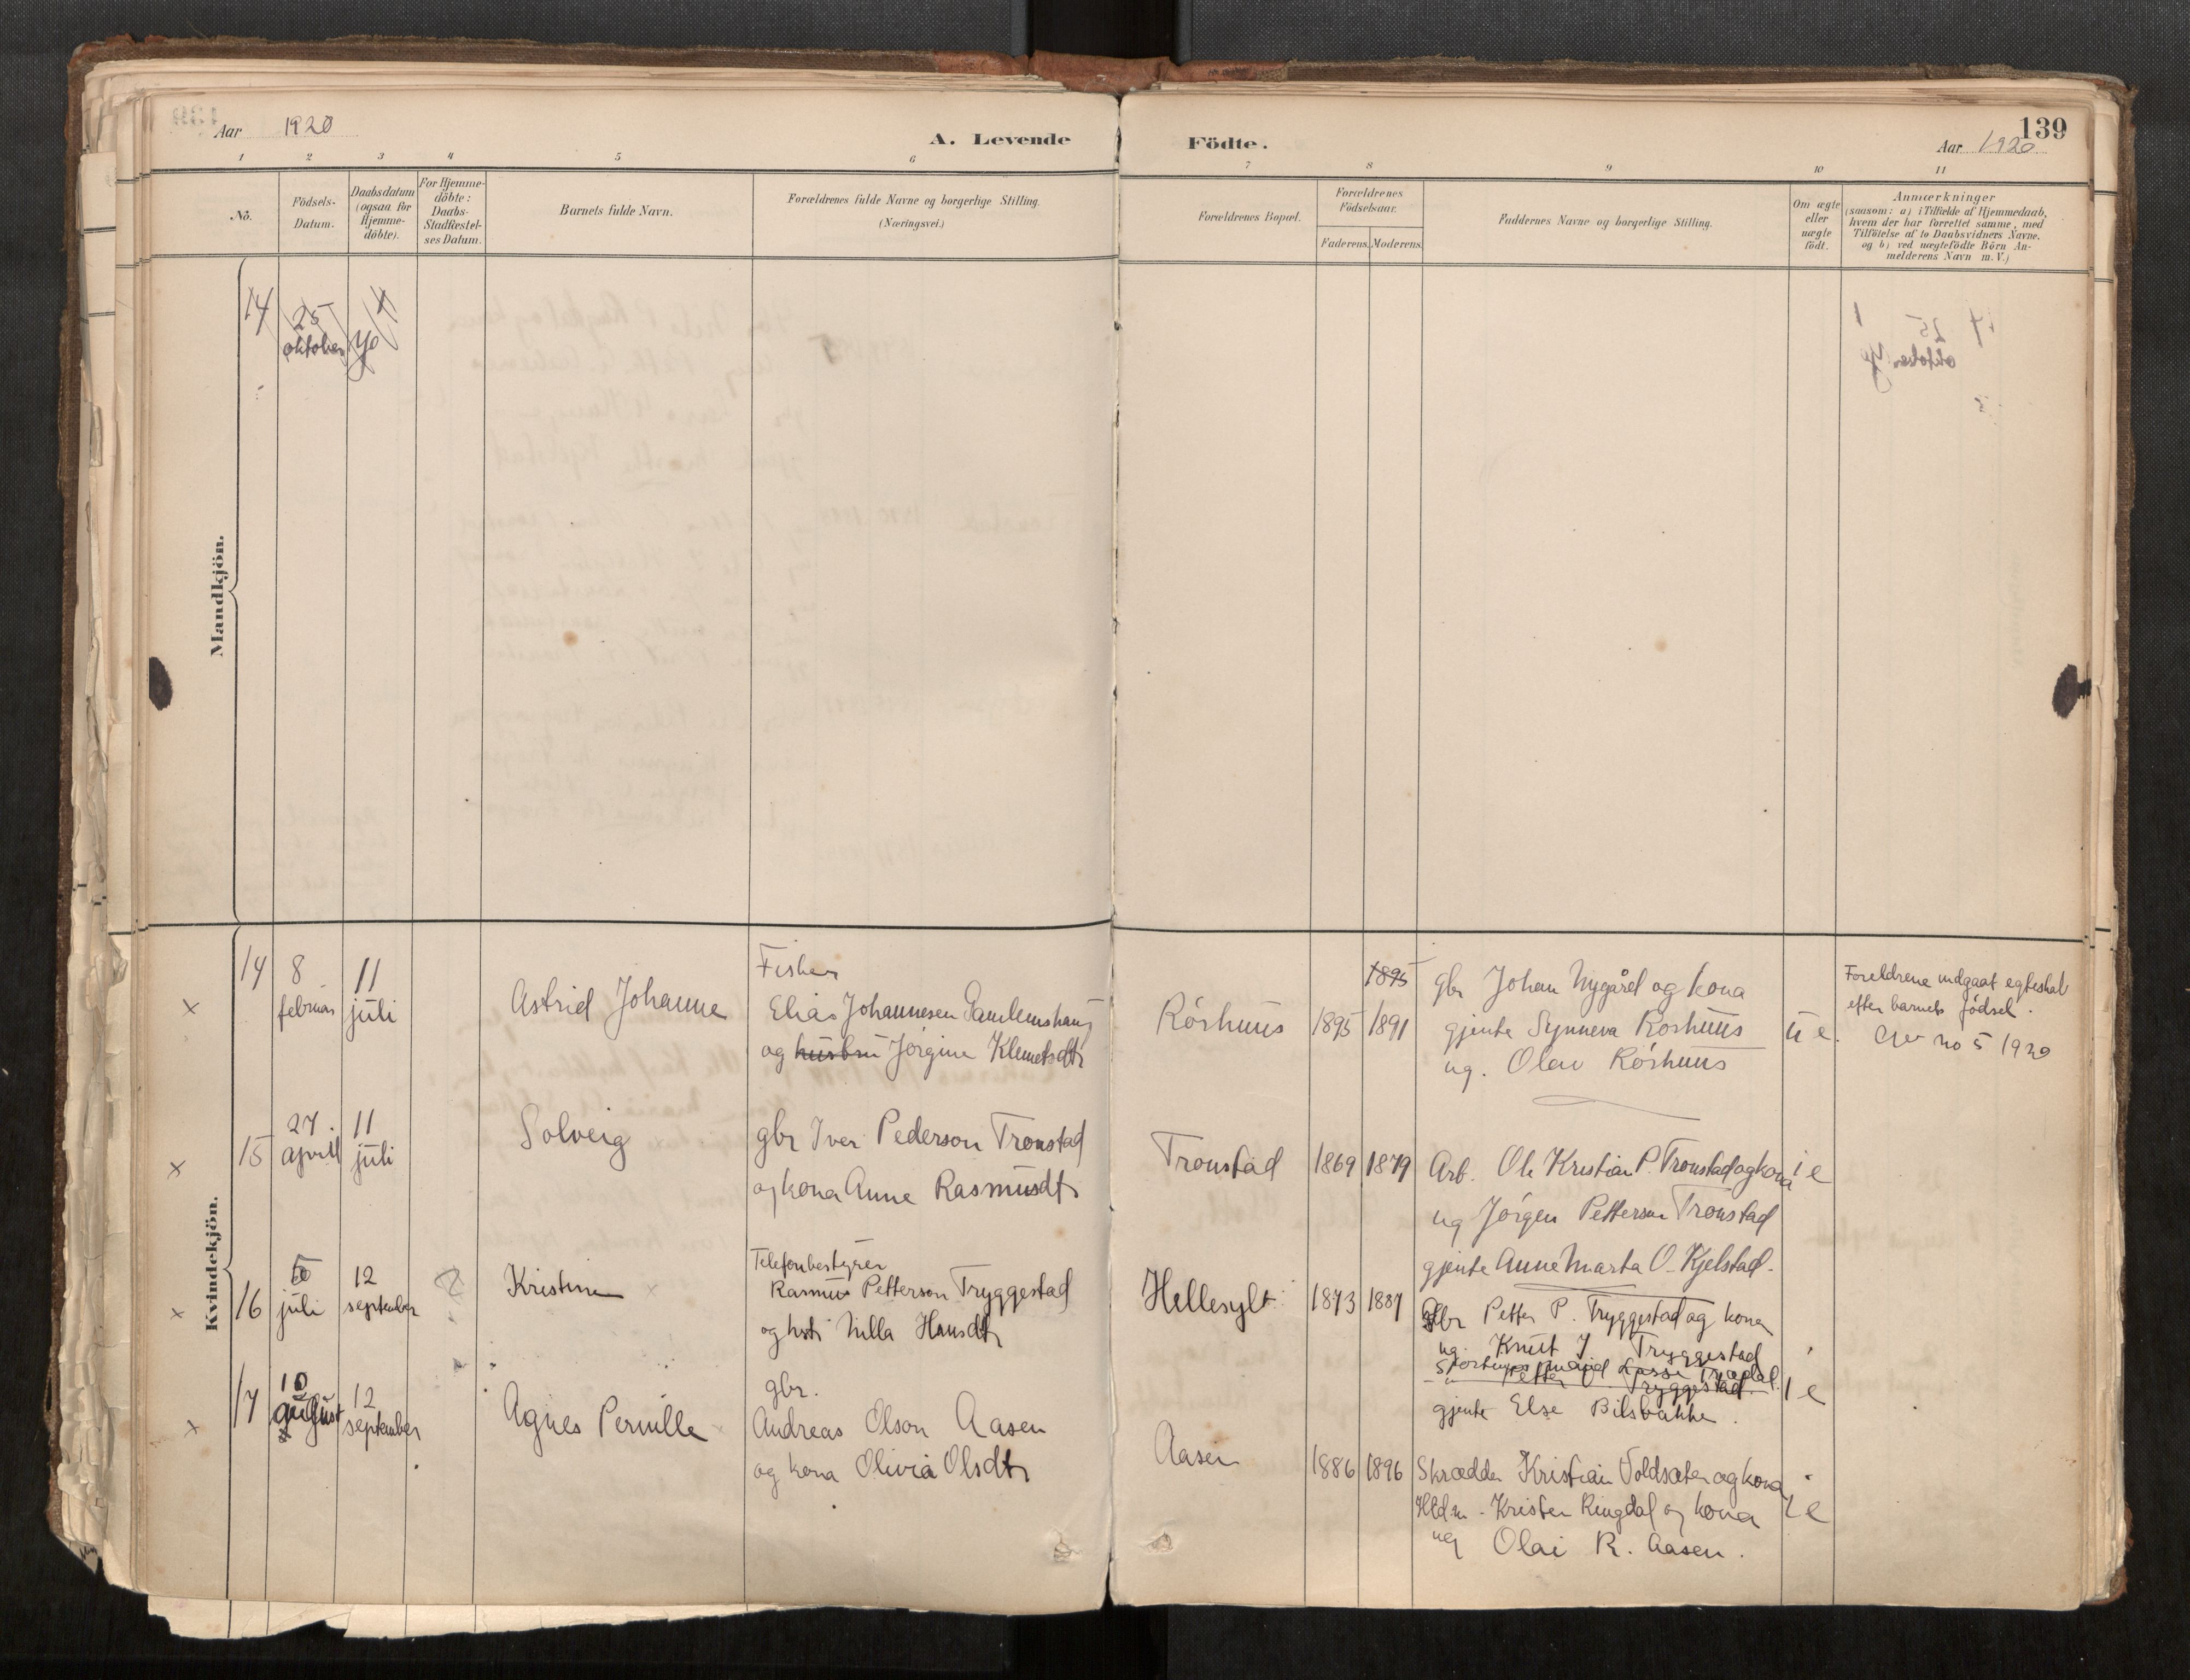 Aar 1920
A. Levende Födte.
139
Aar 1920
1 2 3 4 5 6 7 8 9 10 11
Nô.
Födsels-
Datum.
Daabsdatum
(ogsaa for
Hjemme-
döbte).
For Hjemme-
döbte:
Daabs-
Stadfæstel-
ses Datum.
Barnets fulde Navn.
Forældrenes fulde Navne og borgerlige Stilling.
(Næringsvei.)
Forældrenes Bopæl.
Forældrenes
Födselsaar.
Faderens. Moderens.
Faddernes Navne og borgerlige Stilling.
Om ægte
eller
uægte
födt.
Anmærkninger
(saasom: a) i Tilfælde af Hjemmedaab,
hvem der har forrettet samme, med
Tilföielse af to Daabsvidners Navne,
og b) ved uægtefödte Börn An-
melderens Navn m. V.)
Mandkjön.
14 25
oktober
Kvindekjön.
× 14 8
februar
11
juli
Astrid Johanne
Fisker
Elias Johannesen Gamlemshaug
og husbru Jørgine Klemetsdtr
Rörhuus
1895
1895 1891
gbr Johan Nygård og kona
gjente Synneva Rorhuus
ug. Olav Rörhuus
u e.
Foreldrene indgaat egteskab
efter barnets födsel.
no 5 1920
× 15 27.
april
11
juli
Solveig
gbr Iver Pederson Tronstad
og kona Anne Rasmusdtr
Tronstad
1869 1879
Arb. Ole Kristian P. Tronstad og kona
ug Jörgen Petterson Tronstad
gjente Anne Marta O. Kjelstad.
i e
× 16
juli
12
september
Kristine ×
Telefonbestyrer
Rasmus Petterson Tryggestad
og Nilla Hansdtr
Hellesylt
1873 1887
gbr Petter P. Tryggestad og kona
ug. Knut J. Tryggestad
Petter Tryggestad
gjente Else Bilsbakke.
i e
× 17 10
august
12
september
Agnes Pernille ×
gbr.
Andreas Olson Aasen
og kona Olivia Olsdtr
Aasen
1886 1896
Skrædder Kristian Voldsæter og kona
Kristen Ringdal og kona
ug Olai R. Aasen.
i e